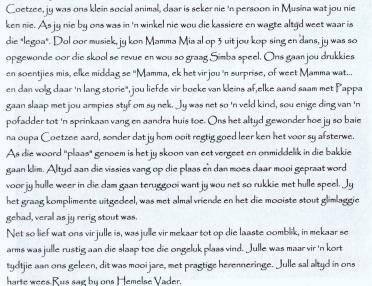 Coetzee, jy was ons klein social animal, daar is seker nie 'n persoon in Musina wat jou nie
ken nie. As jy nie by ons was in 'n winkel nie wou die kassiere en wagte altyd weet waar is
die "legoa". Dol oor musiek, jy kon Mamma Mia al op 3 uit jou kop sing en dans, jy was so
opgewonde oor die skool se revue en wou so graag Simba speel. Ons gaan jou drukkies
en soentjies mis, elke middag se "Mamma, ek het vir jou 'n surprise, of weet Mamma wat...
en dan volg daar 'n lang storie", jou liefde vir boeke van kleins af, elke aand saam met Pappa
gaan slaap met jou armpies styf om sy nek. Jy was net so 'n veld kind, sou enige ding van 'n
pofadder tot 'n sprinkaan vang en aandra huis toe. Ons het altyd gewonder hoe jy so baie
na oupa Coetzee aard, sonder dat jy hom ooit regtig goed leer ken het voor sy afsterwe.
As die woord "plaas" genoem is het jy skoon van eet vergeet en onmiddelik in die bakkie
gaan klim. Altyd aan die vissies vang op die plaas en dan moes daar mooi gepraat word
voor jy hulle weer in die dam gaan teruggooi want jy wou net so rukkie met hulle speel. Jy
het graag komplimente uitgedeel, was met almal vriende en het die mooiste stout glimlaggie
gehad, veral as jy rerig stout was.
Net so lief wat ons vir julle is, was julle vir mekaar tot op die laaste oomblik, in mekaar se
arms was julle rustig aan die slaap toe die ongeluk plaas vind. Julle was maar vir 'n kort
tydtjie aan ons geleen, dit was mooi jare, met pragtige herenneringe. Julle sal altyd in ons
harte wees. Rus sag by ons Hemelse Vader.